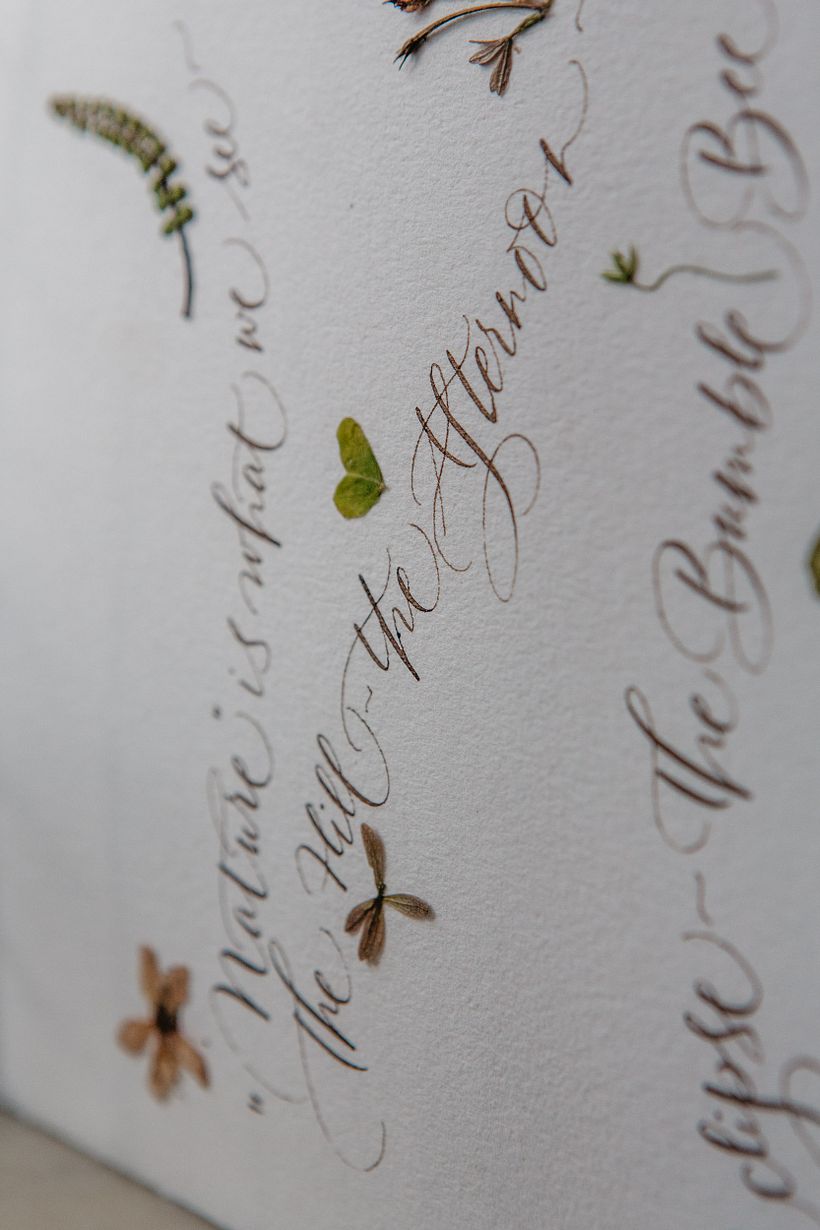 "Nature" is what we see ~
The Hill ~ the Afternoon ~
clipse ~ The Bumble Bee